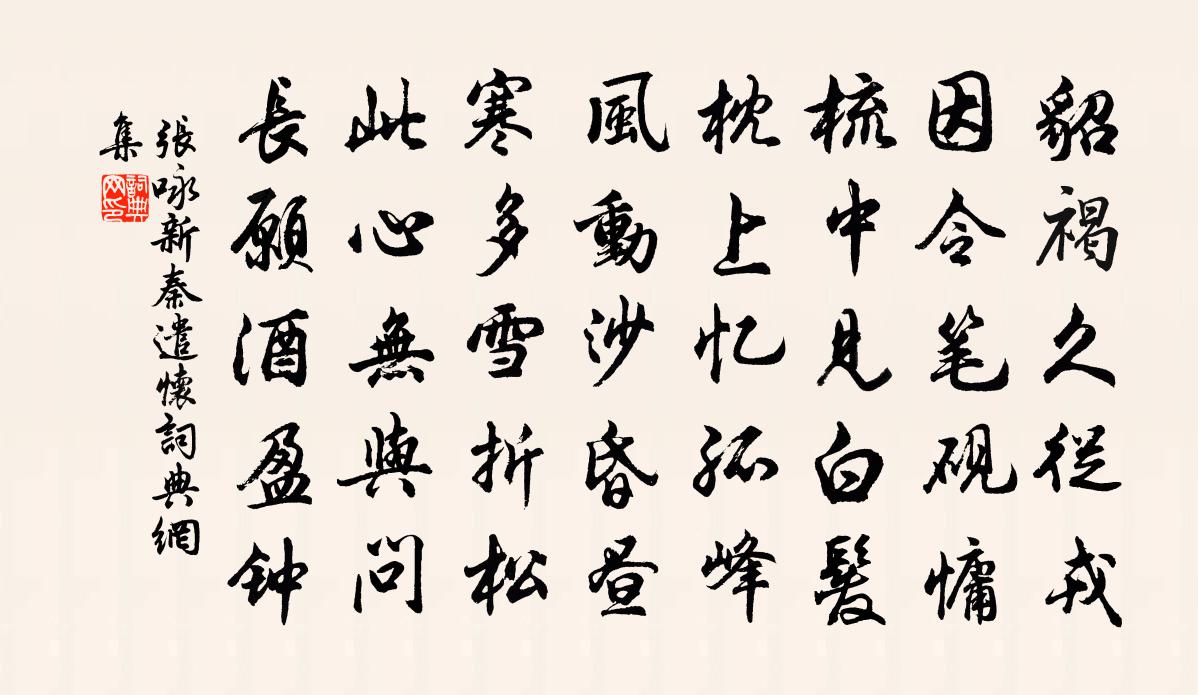 貂褐久從戎
因令笔砚慵
梳中見白髮
枕上忆孤峰
風動沙昏晝
寒多雪折松
此心無與問
長願酒盈钟
張咏新秦遣懷詞典網
集
詞典網印